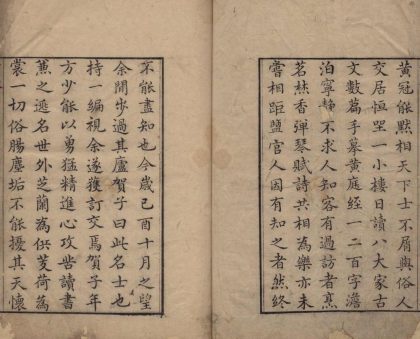 黃冠能默相天下士不屑與俗人
交居恒坐一小樓日讀八大家古
文數萹手摹黃庭經一二百字澹
泊寧靜不求人知客有過訪者烹
茗爇香彈琴賦詩共相為樂亦未
嘗相距盬官人因有知之者然終
不能盡知也今歲己酉十月之望
余閒步過其廬賀子曰此名士也
持一編視余遂獲訂交焉賀子年
方少能以勇猛精進心攻苦讀書
蕙之遯名世外芝蘭為供芰荷為
裳一切俗腸塵垢不能擾其天懷